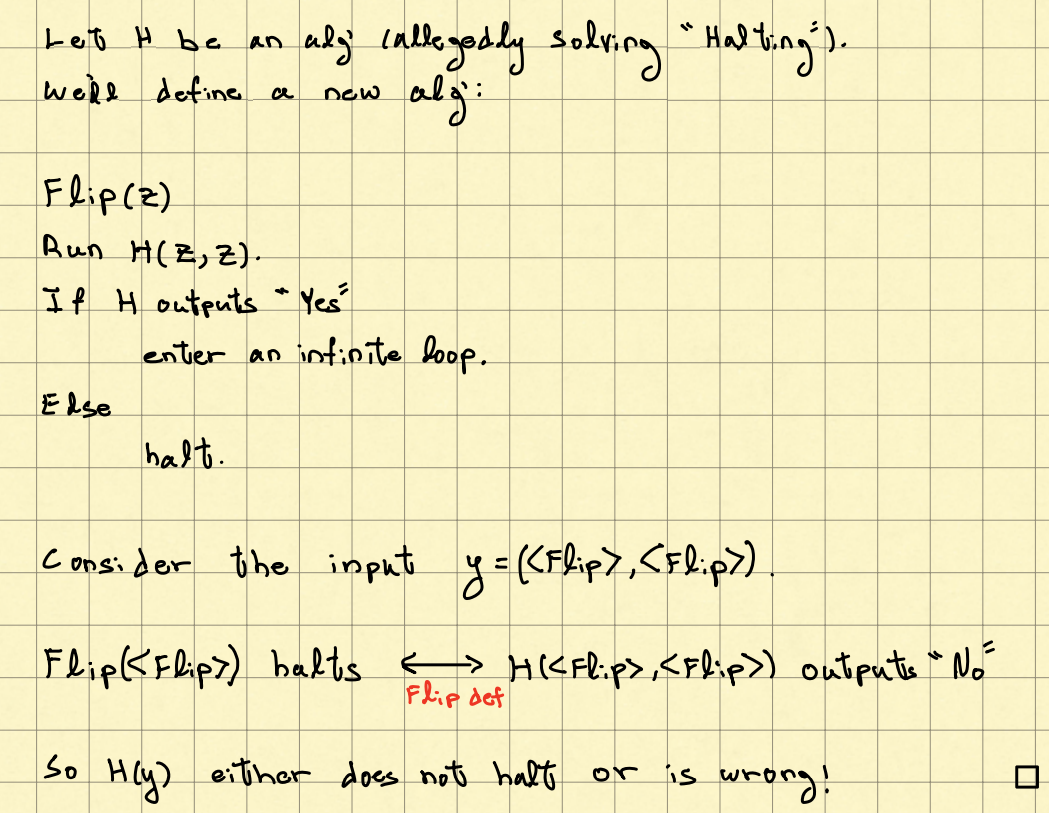 Let H be an alg' (allegedly solving "Halting").
We'll define a new alg':
Flip(z)
Run H(z,z).
If H outputs "Yes"
enter an infinite loop.
Else
halt.
Consider the input y=(<Flip>,<Flip>).
Flip(<Flip>) halts ⟷ H(<Flip>,<Flip>) outputs "No"
Flip def
So H(y) either does not halt or is wrong! □